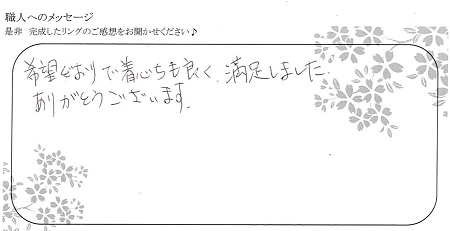 職人へのメッセージ
是非 完成したリングのご感想をお聞かせください♪
希望どおりで着心ちも良く、満足しました。
ありがとうございます。